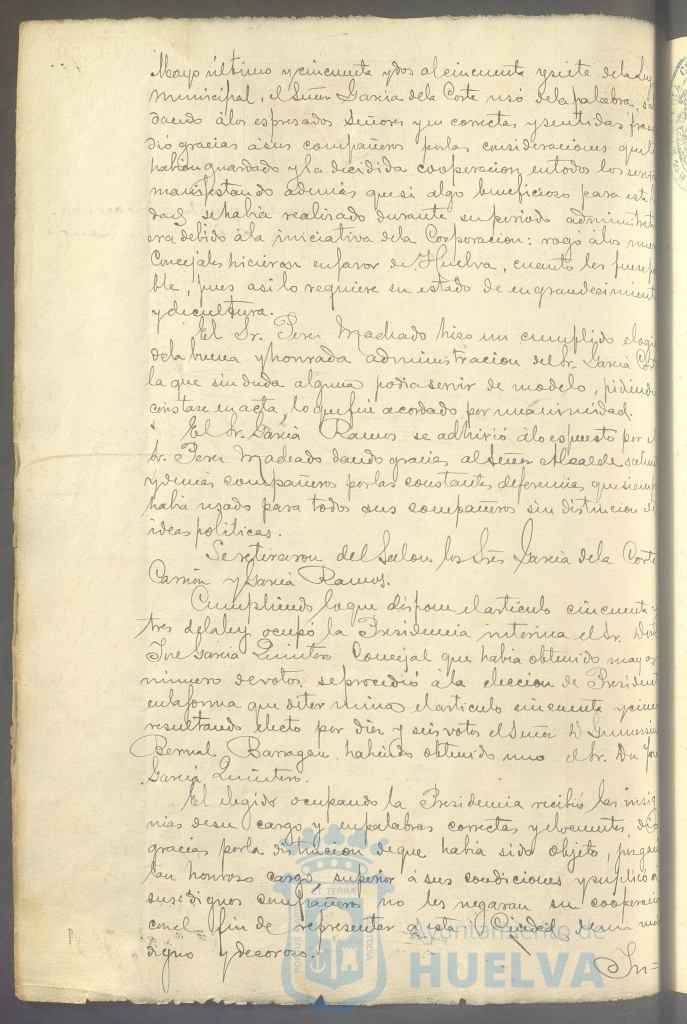 Mayo último y cincuenta y dos al cincuenta y siete de la Ley
municipal, el Señor Garcia dela Corte usó dela palabra, sa
dando álos espresados Señores y en correctas y sentidas frase
dió gracias á sus compañeros por las consideraciones que le
habian guardado y la decidida cooperacion en todos los servi
manifestando además que si algo beneficioso para esta
se habia realizado durante su periodo administrati
era debido á la iniciativa dela Corporacion: rogó álos nue
Concejales hicieran en favor de Huelva, cuanto les fuese
ble, pues asi lo requiere su estado de engrandecimient
y de cultura.
El Sr. Perez Machado hizo un cumplido elogi
dela buena y honrada administracion del Sr. Garcia Cort
la que sin duda alguna podia servir de modelo, pidiendo
constase en acta, lo que fué acordado por unanimidad.
El Sr. Garcia Ramos se adhirió álo espuesto por el
Sr. Perez Machado dando gracias al Señor Alcalde
y demás compañeros por las constantes deferencias que siemp
habia usado para todos sus compañeros sin distincion de
ideas politicas.
Se retiraron del Salon los Sres Garcia dela Corte
Carrion y Garcia Ramos.
Cumpliendo lo que dispone el articulo cincuenta y
tres dela ley, ocupó la Presidencia interina el Sr.
José Garcia Quintero Concejal que habia obtenido mayor
número de votos, se procedió á la eleccion de President
en la forma que determina el articulo cincuenta y cinco
resultando electo por diez y seis votos el Señor D Gumersin
Bernal Barragan, habiendo obtenido uno el Sr. Dn Jose
Garcia Quintero.
El elegido ocupando la Presidencia recibió las insig
nias de su cargo y en palabras correctas y elocuentes, dió
gracias por la distincion de que habia sido objeto,
tan honroso cargo, superior á sus condiciones y suplicó a
sus dignos compañeros no les negaran su cooperacio
con el fin de representar á esta Ciudad de un mo
digno y decoroso.
In=
PORTUS MARIS ET TERRAE CUSTODIA
Ayuntamiento de
HUELVA